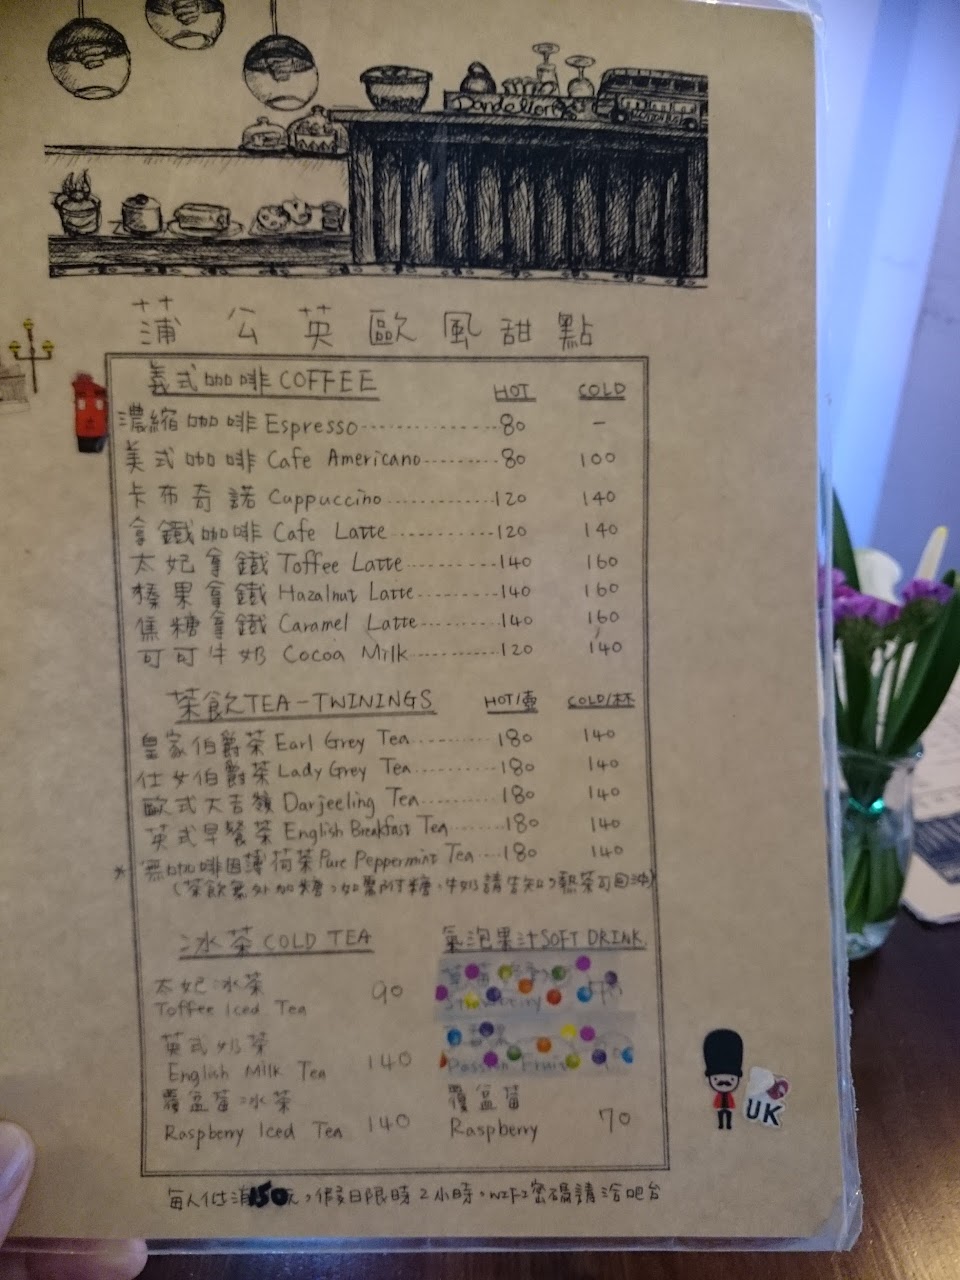 Dandelion
蒲公英歐風甜點
義式咖啡 COFFEE HOT COLD
濃縮咖啡 Espresso 80 -
美式咖啡 Cafe Americano 80 100
卡布奇諾 Cappuccino 120 140
拿鐵咖啡 Cafe Latte 120 140
太妃拿鐵 Toffee Latte 140 160
榛果拿鐵 Hazalnut Latte 140 160
焦糖拿鐵 Caramel Latte 140 160
可可牛奶 Cocoa Milk 120 140
茶飲 TEA-TWININGS HOT/壺 COLD/杯
皇家伯爵茶 Earl Grey Tea 180 140
仕女伯爵茶 Lady Grey Tea 180 140
歐式大吉嶺 Darjeeling Tea 180 140
英式早餐茶 English Breakfast Tea 180 140
*無咖啡因薄荷茶 Pure Peppermint Tea 180 140
(茶飲無外加糖,如需附糖、牛奶請告知,熱茶可回沖)
冰茶 COLD TEA
太妃冰茶 90
Toffee Iced Tea
英式奶茶
English Milk Tea 140
覆盆莓冰茶
Raspberry Iced Tea 140
氣泡果汁 SOFT DRINK
Strawberry
Passion Fruit
覆盆莓
Raspberry 70
UK
每人低消150元,假日限時2小時。WIFI密碼請洽吧台